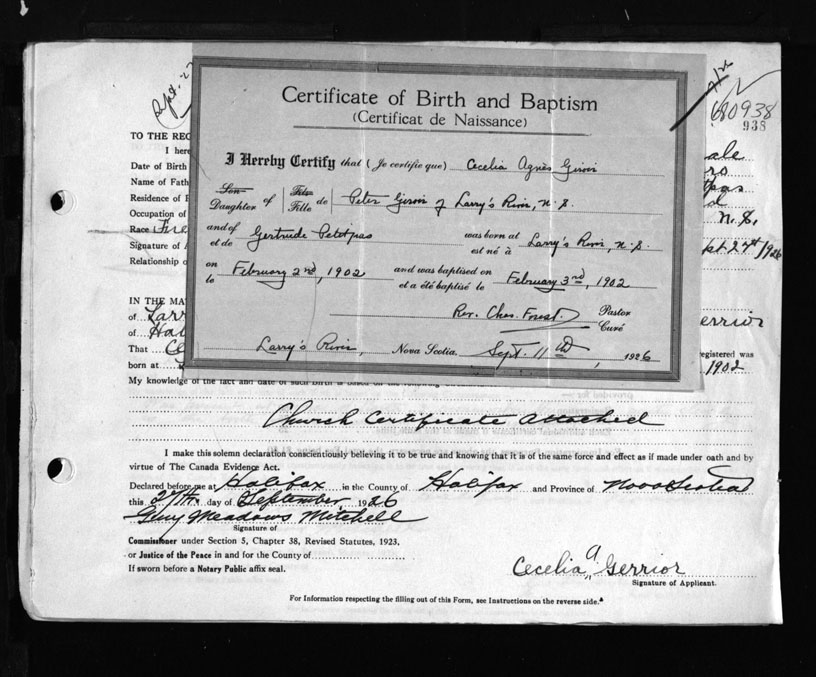 Sept. 27
680938
938
Certificate of Birth and Baptism
(Certificat de Naissance)
I Hereby Certify that (Je certifie que) Cecelia Agnès Girroir
Son Fils
Daughter of Fille de Peter Girroir of Larry's River, N.S.
and of
et de Gertrude Petitpas was born at
est né à Larry's River, N.S.
on
le February 2nd, 1902 and was baptised on
et a été baptisé le February 3rd, 1902
Rev. Chas. Forest Pastor
Curé
Larry's River, Nova Scotia. Sept. 11th, 1926
TO THE REG
I here ale
Date of Birth
Name of Fath pas
Residence of
Occupation of N.S.
Race Fre
Signature of A pt 27th 1926
Relationship o
IN THE MA
of Larr errior
of Hal
That Ce registered was
born at 1902
My knowledge of the fact and date of such birth is based on the following
Church Certificate Attached
I make this solemn declaration conscientiously believing it to be true and knowing that it is of the same force and effect as if made under oath and by
virtue of The Canada Evidence Act.
Declared before me at Halifax in the County of Halifax and Province of Nova Scotia
this 27th day of September 1926
Guy Meadows Mitchell
Signature of
Commissioner under Section 5, Chapter 38, Revised Statutes, 1923.
or Justice of the Peace in and for the County of
If sworn before a Notary Public affix seal.
Cecelia A Gerrior
Signature of Applicant.
For Information respecting the filling out of this Form, see Instructions on the reverse side.